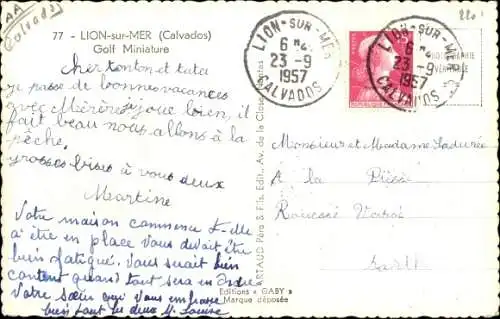 AA
Calvados
77 - LION-sur-MER (Calvados)
Golf Miniature
Cher tonton et tata
je passe de bonnes vacances
avec Mérène je joue bien, il
fait beau nous allons à la
pêche,
grosses bises à vous deux
Martine
Votre maison commence t-elle
a être en place vous devait être
bien fatigué. Vous serait bien
content quand tout sera en ordre
Votre sœur qui vous embrasse
bien tout les deux M. Louise
LION-SUR-MER
6 H
23 -9
1957
CALVADOS
LION-SUR-MER
6 H
23 -9
1957
CALVADOS
PHOTOGRAPHIE
VÉRITABLE
ARTAUD Père & Fils, Edit., Av. de la Close, Nantes
Editions « GABY »
Marque déposée
Monsieur et Madame
A la
Sarthe